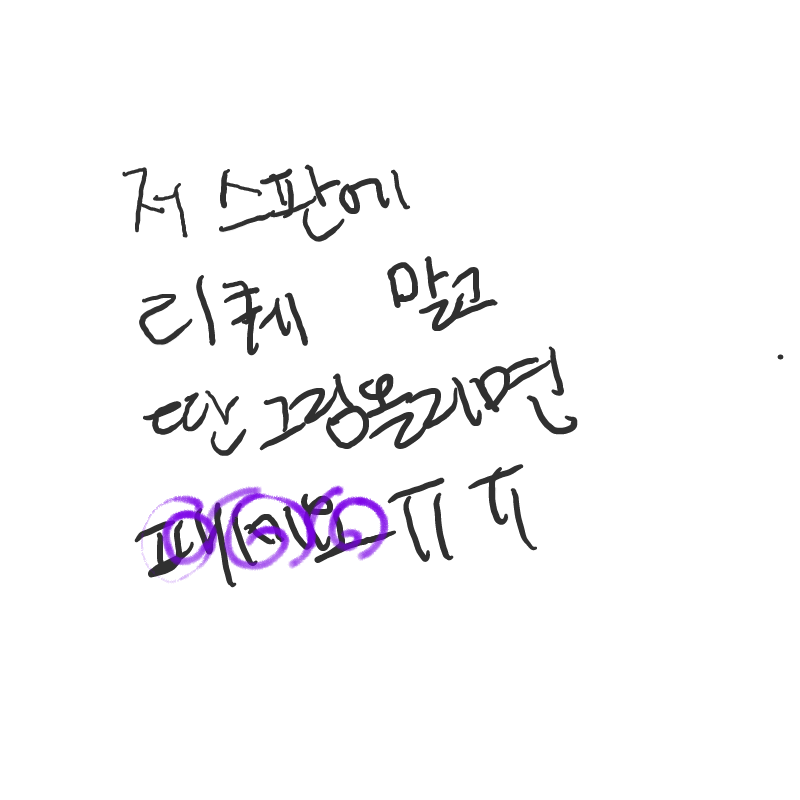 저 스판에
리퀘 말고
딴 그림올리면
패세요ㅠㅠ